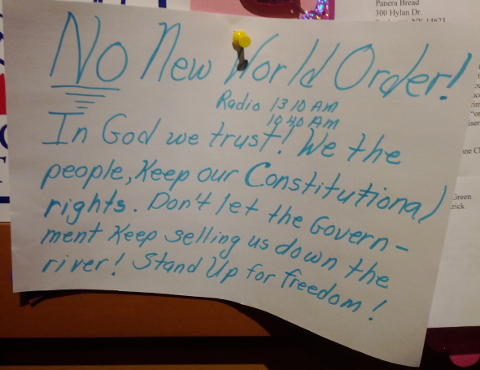 Panera Bread
300 Hylan Dr.
No New World Order!
Radio 1310 AM
1040 AM
In God we trust! We the
people, Keep our Constitutional
rights. Don't let the Govern-
ment Keep selling us down the
river! Stand Up for freedom!
Green